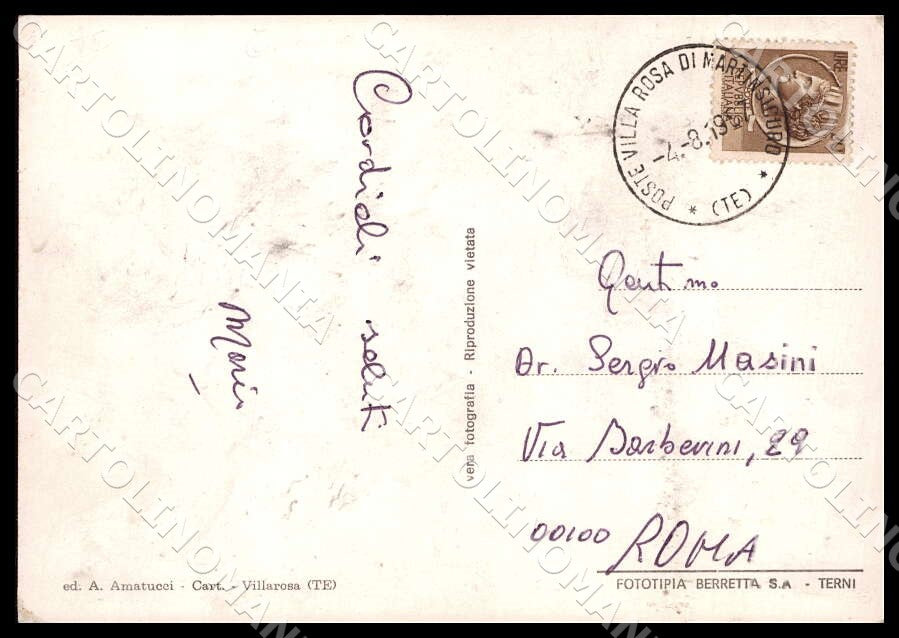 Cordiali saluti
POSTE VILLA ROSA DI MARTINSICURO
-4.-8.19
* (TE) *
LIRE
Gent.mo
Dr. Sergio Masini
Via Barberini, 29
00100 ROMA
vera fotografia - Riproduzione vietata
ed. A. Amatucci - Cart. - Villarosa (TE)
FOTOTIPIA BERRETTA S.A - TERNI
CARTOLINOMANIA